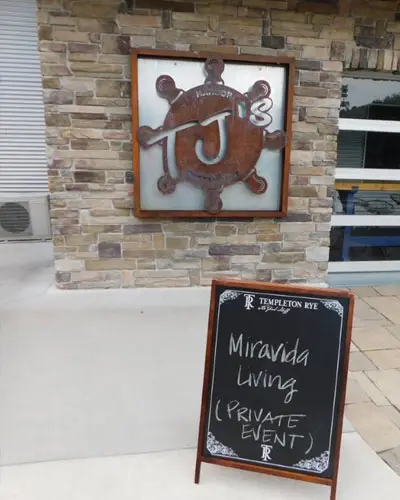 HARBOR
TJ's
TR
TEMPLETON RYE
The Good Stuff
Miravida
Living
(PRIVATE
EVENT)
TR